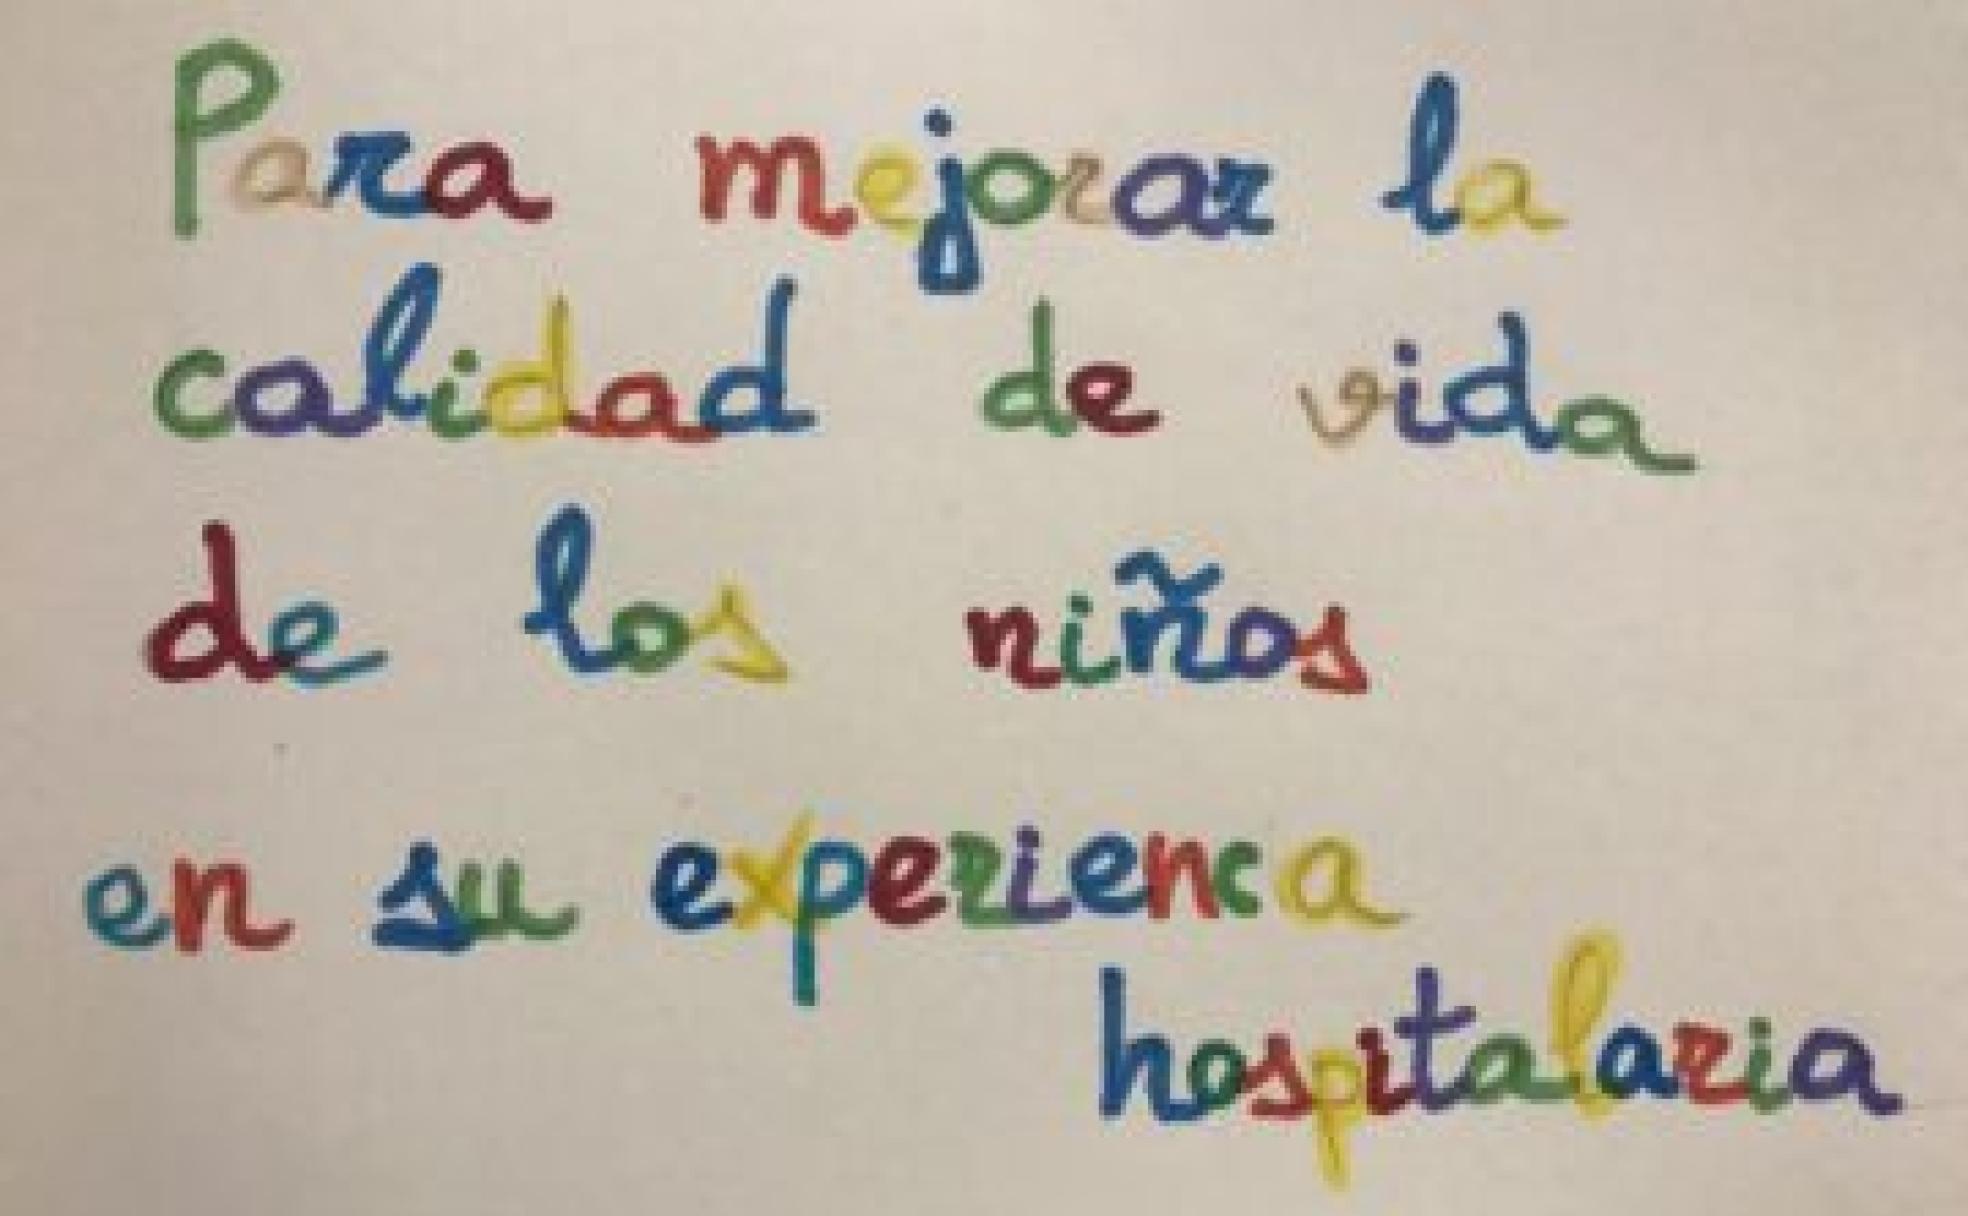 Para mejorar la
calidad de vida
de los niños
en su experienca
hospitalaria